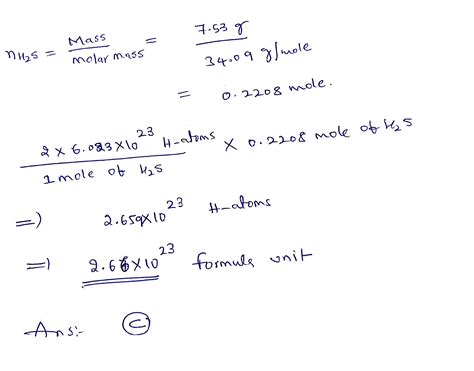 nH2S = Mass / molar mass = 7.53 g / 34.09 g/mole
= 0.2208 mole.
2 × 6.023×10^23 H-atoms / 1 mole of H2S × 0.2208 mole of H2S
=) 2.659×10^23 H-atoms
=) 2.66×10^23 formula unit
Ans:- (C)